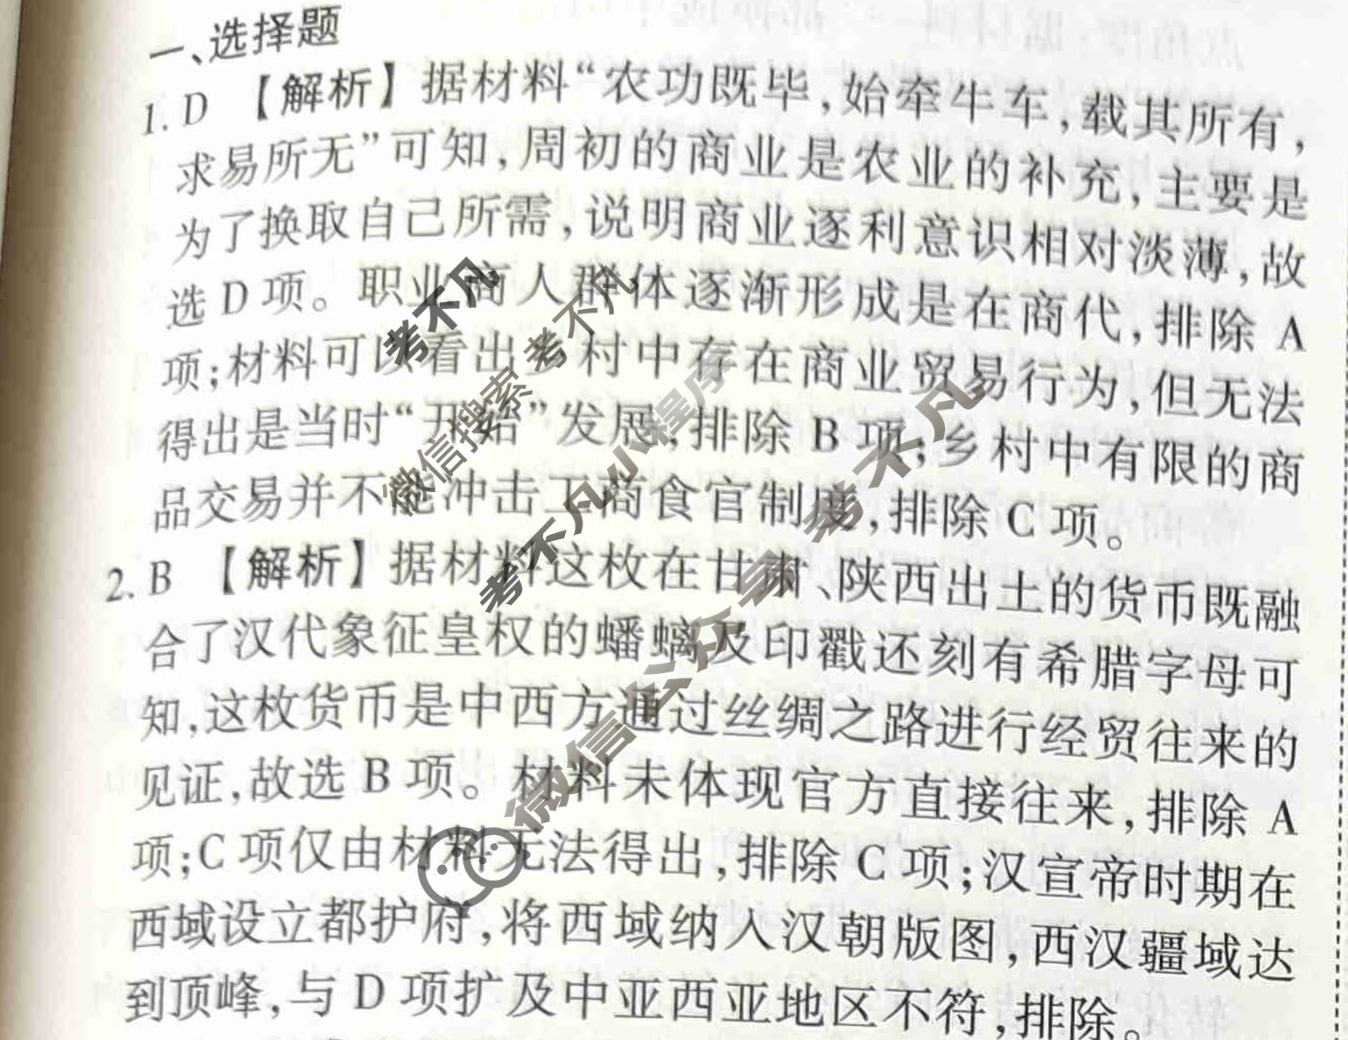 一、选择题
1. D 【解析】据材料“农功既毕,始牵牛车,载其所有,
求易所无”可知,周初的商业是农业的补充,主要是
为了换取自己所需,说明商业逐利意识相对淡薄,故
选 D 项。职业商人群体逐渐形成是在商代,排除 A
项;材料可以看出乡村中存在商业贸易行为,但无法
得出是当时“开始”发展,排除 B 项;乡村中有限的商
品交易并不能冲击工商食官制度,排除 C 项。
2. B 【解析】据材料这枚在甘肃、陕西出土的货币既融
合了汉代象征皇权的蟠螭及印戳还刻有希腊字母可
知,这枚货币是中西方通过丝绸之路进行经贸往来的
见证,故选 B 项。材料未体现官方直接往来,排除 A
项;C 项仅由材料无法得出,排除 C 项;汉宣帝时期在
西域设立都护府,将西域纳入汉朝版图,西汉疆域达
到顶峰,与 D 项扩及中亚西亚地区不符,排除。
考不凡
微信搜索 考不凡
考不凡小程序
微信公众号 考不凡